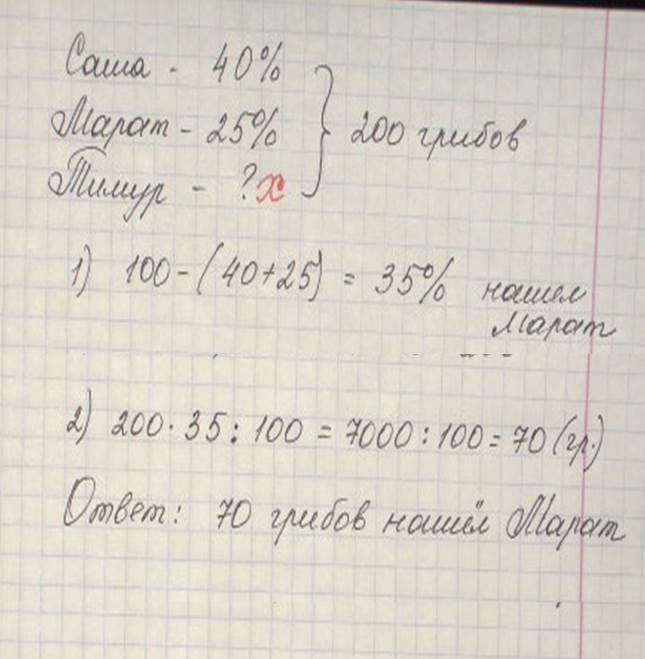 Саша - 40%
Марат - 25% } 200 грибов
Тимур - ? x
1) 100 - (40+25) = 35% нашел
Марат
2) 200 · 35 : 100 = 7000 : 100 = 70 (гр.)
Ответ: 70 грибов нашёл Марат